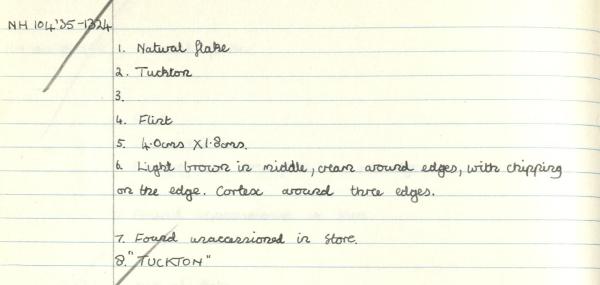 NH 104'35-1324
1. Natural flake
2. Tuckton
3.
4. Flint
5. 4.0cms X1.8cms.
6. Light brown in middle, cream around edges, with chipping
on the edge. Cortex around three edges.
7. Found unaccessioned in Store.
8. "TUCKTON"